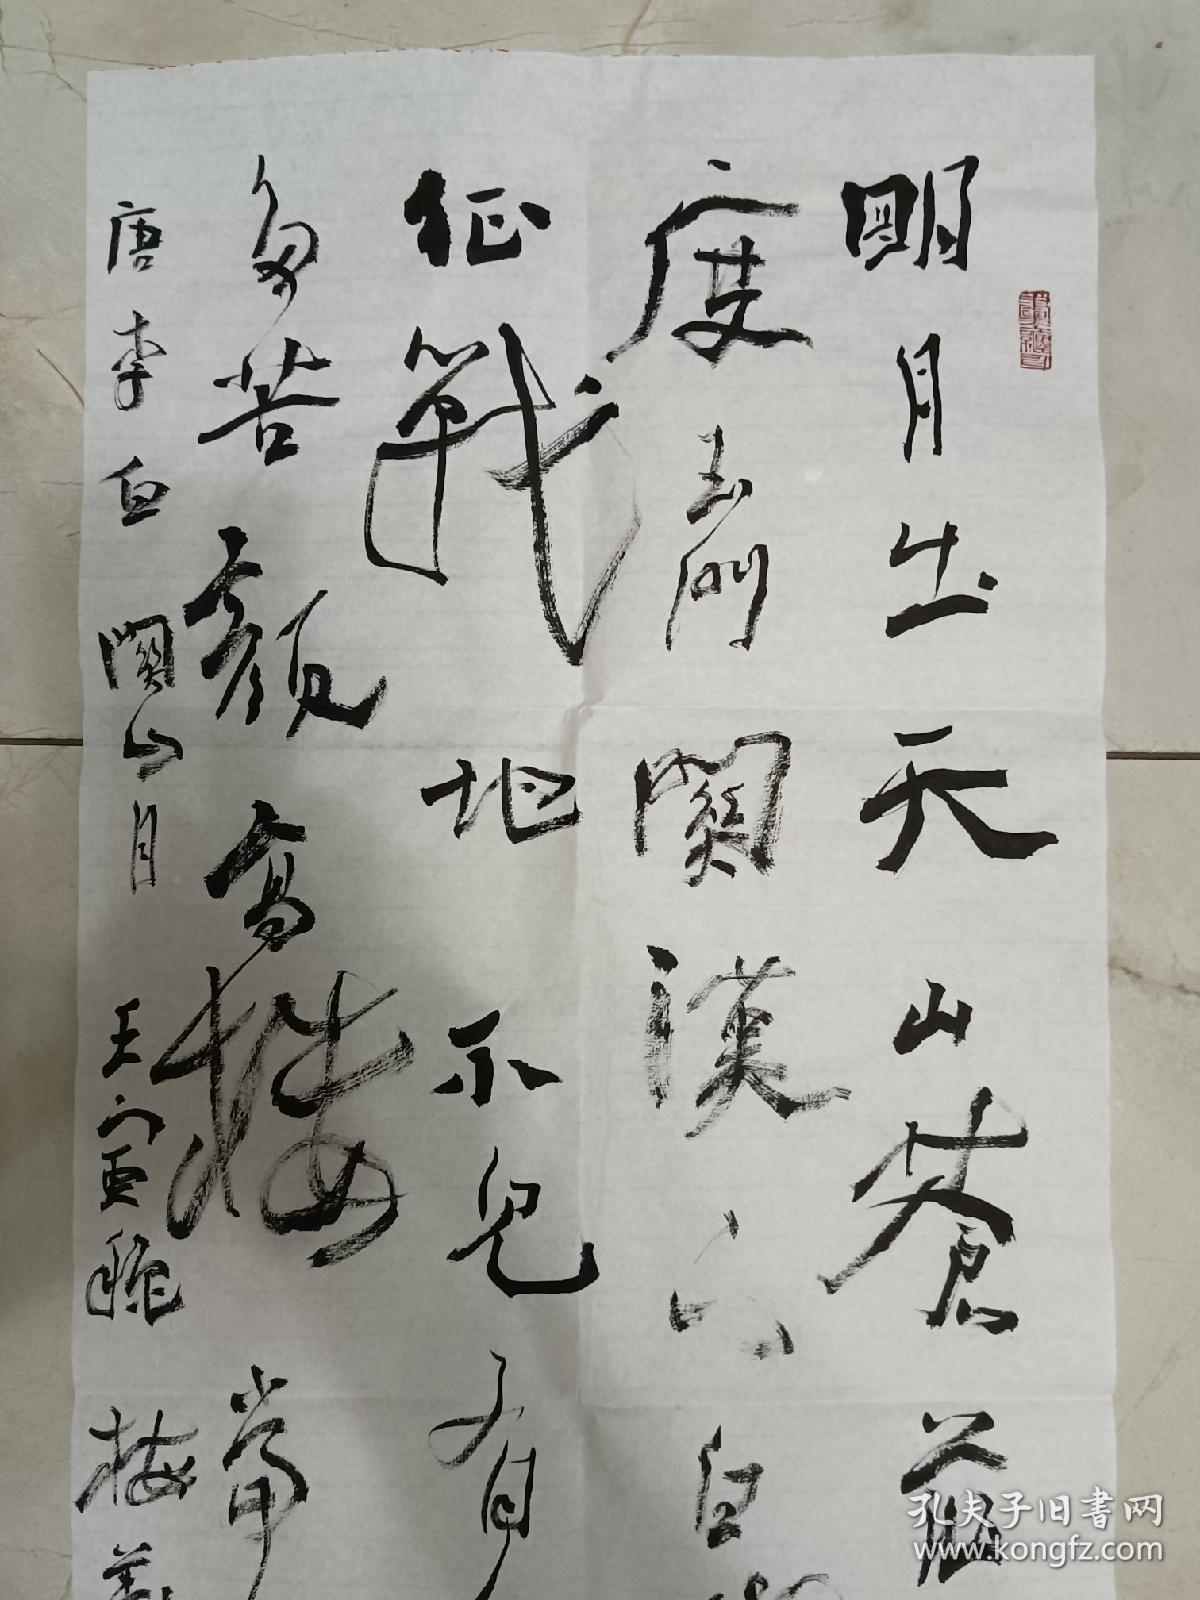 明月出天山蒼茫
度玉門關漢下白
征戰地不見有
多苦顏高樓當
唐李白關山月 壬寅穐 梅
孔夫子旧书网
www.kongfz.com